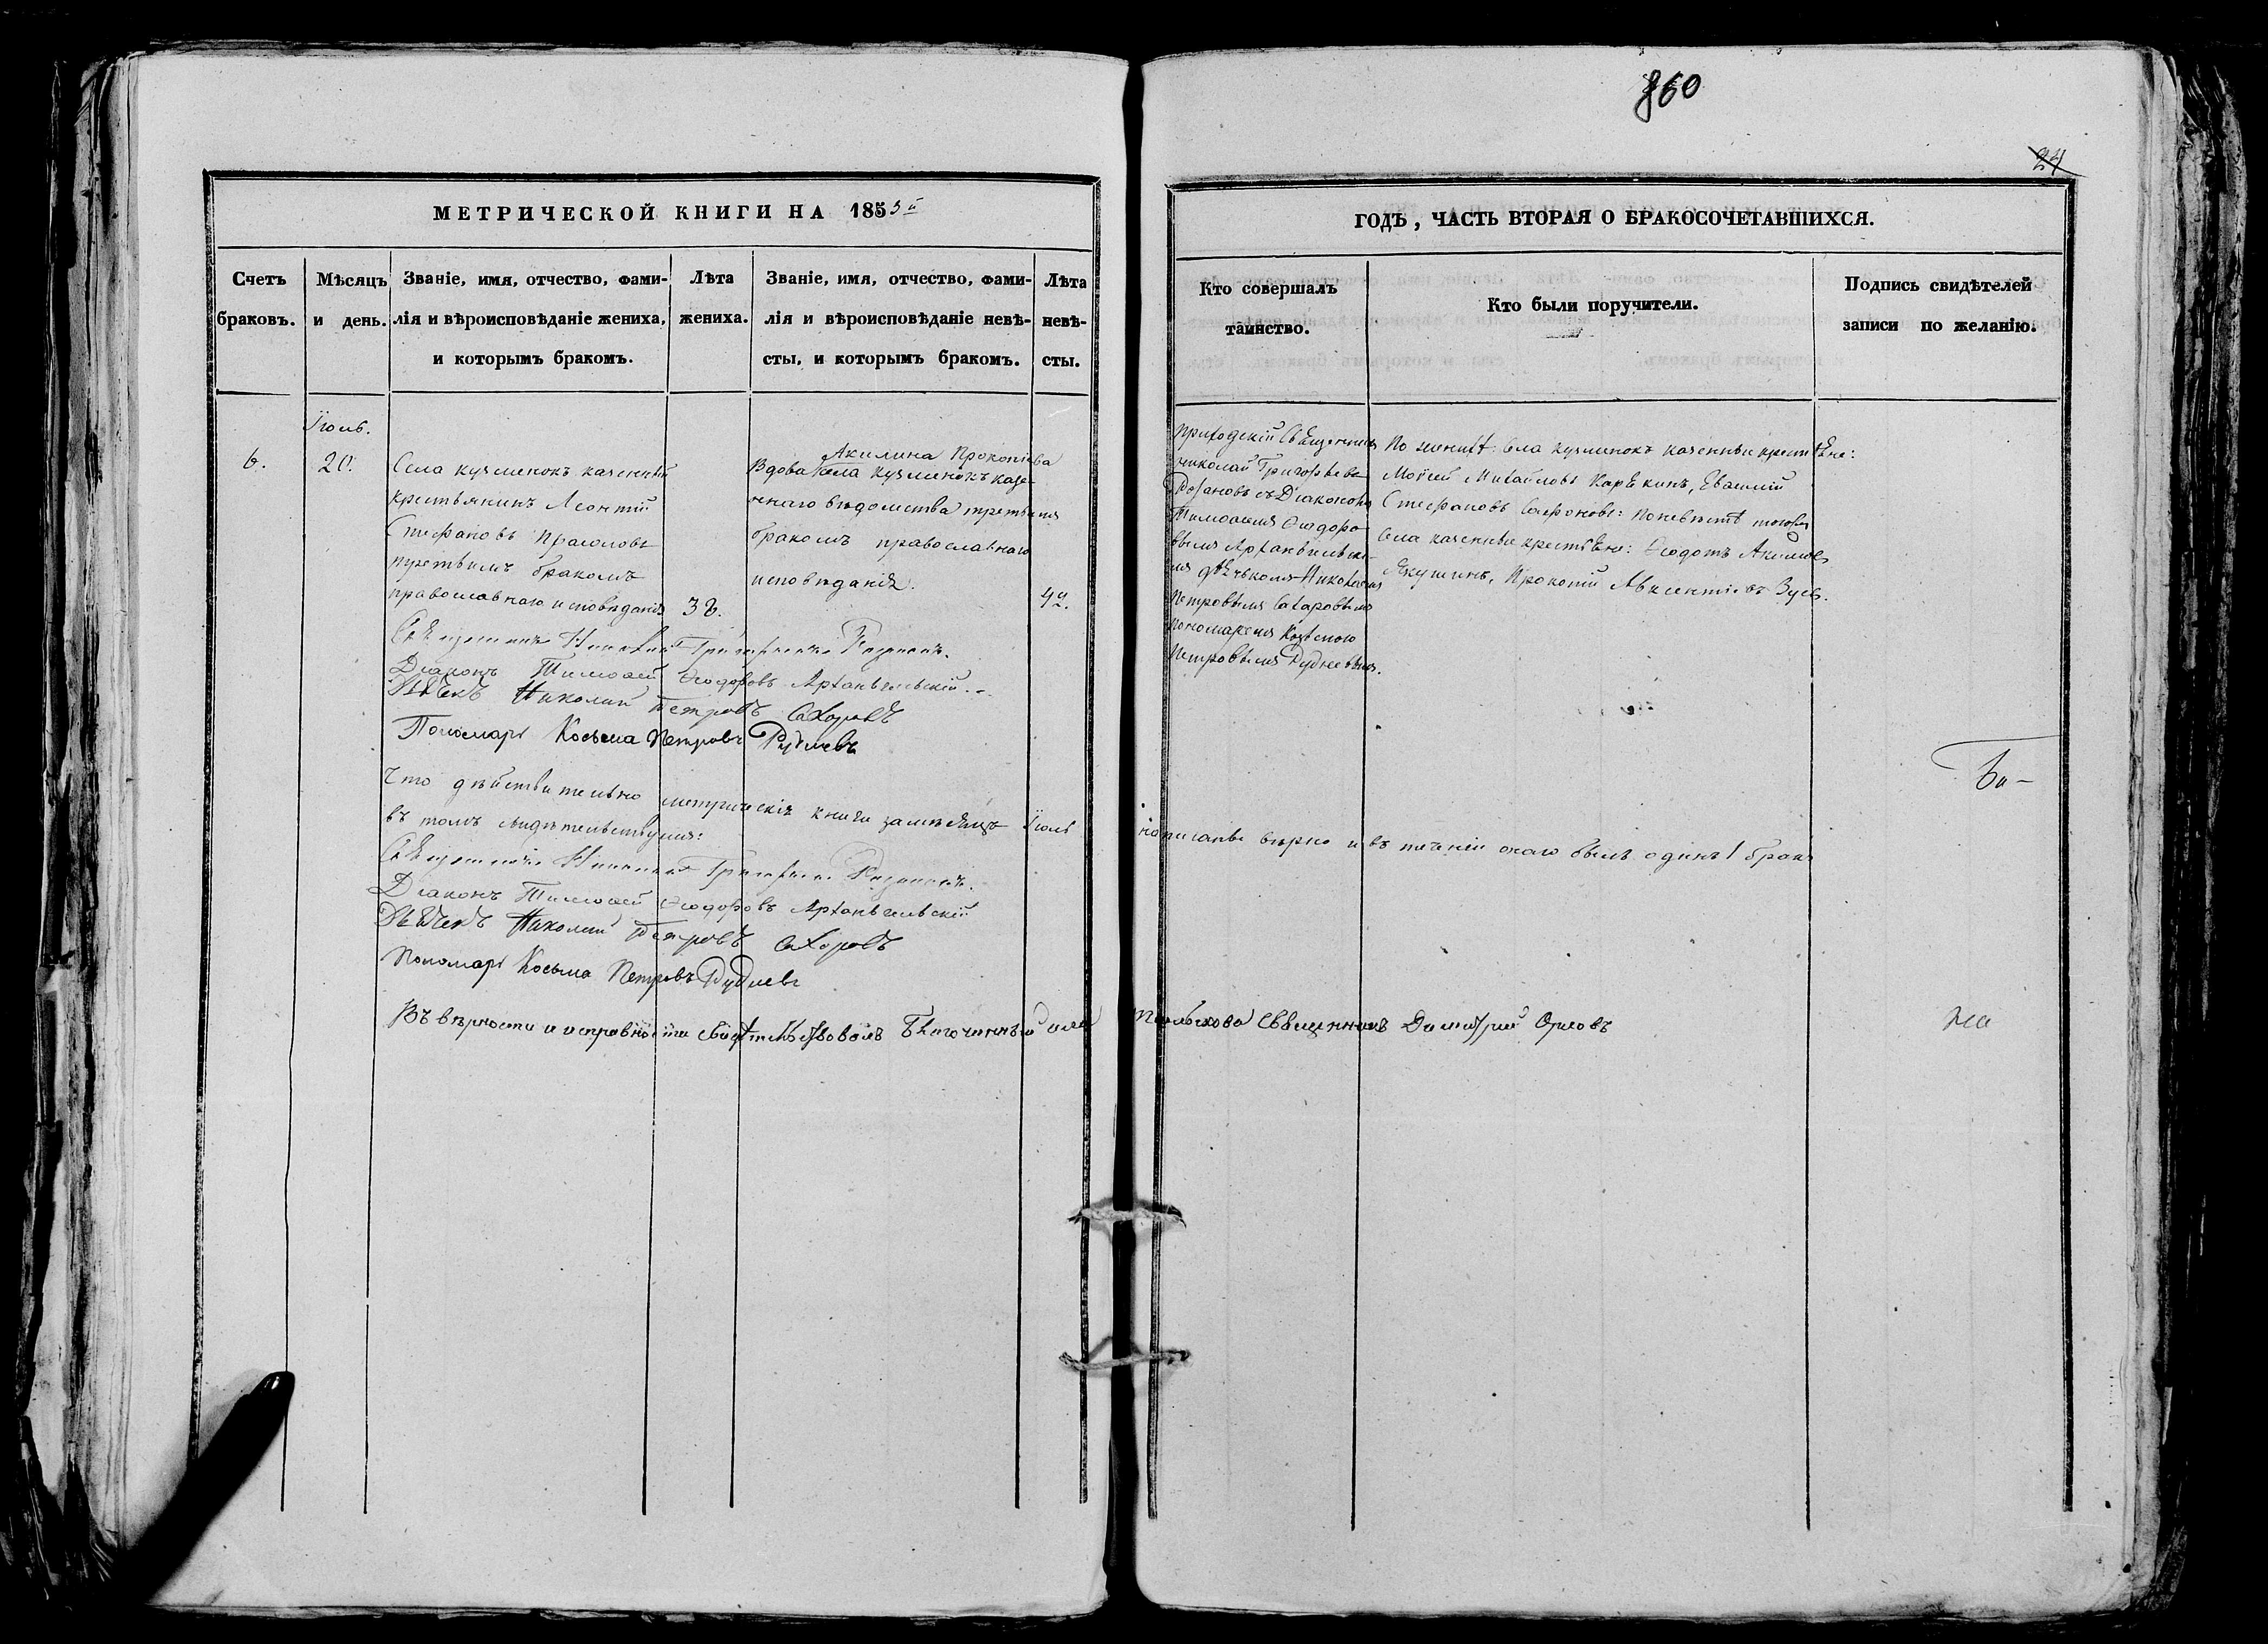 860
24
МЕТРИЧЕСКОЙ КНИГИ НА 1855й
Счетъ
браковъ.
Мѣсяцъ
и день.
Званіе, имя, отчество, фами-
лія и вѣроисповѣданіе жениха,
и которымъ бракомъ.
Лѣта
жениха.
Званіе, имя, отчество, фами-
лія и вѣроисповѣданіе невѣ-
сты, и которымъ бракомъ.
Лѣта
невѣ-
сты.
Іюль.
6.
20.
Села кузменокъ казенный
крестьянинъ Леонтій
Стефановъ
третьимъ бракомъ
православнаго исповѣданія
38.
Акилина Прокопіева
Вдова села кузменокъ казе-
ннаго вѣдомства третьимъ
бракомъ православнаго
исповѣданія.
42.
Священникъ Николай Григорьевъ Розановъ.
Діаконъ Тимоѳей Ѳеодоровъ Архангельскій
Дьячекъ Николай Петровъ Сахаровъ
Пономарь Косьма Петровъ Рудневъ
Что дѣйствительно метрическія книги за мѣсяцъ Іюль
въ томъ свидѣтельствуемъ:
Священникъ Николай Григорьевъ Розановъ.
Діаконъ Тимоѳей Ѳеодоровъ Архангельскій
Дьячекъ Николай Петровъ Сахаровъ
Пономарь Косьма Петровъ Рудневъ
Въ вѣрности и исправности свидѣтельствовалъ Благочинный села
ГОДЪ, ЧАСТЬ ВТОРАЯ О БРАКОСОЧЕТАВШИХСЯ.
Кто совершалъ
таинство.
Кто были поручители.
Подпись свидѣтелей
записи по желанію.
Приходскій Священникъ
Николай Григорьевъ
Розановъ съ Діакономъ
Тимоѳеемъ Ѳеодоро-
вымъ Архангельски-
мъ дьячкомъ Николаемъ
Петровымъ Сахаровымъ
Пономаремъ Козьмою
Петровымъ Рудневымъ.
По женихѣ: Села кузменокъ казенные крестьяне:
Моисей Михайловъ Карѣкинъ, Евѳимій
Стефановъ Сафоновъ: По невѣстѣ тогожъ
Села казенные крестьяне: Ѳеодотъ Акимовъ
Якушинъ, Прокопій Авксентіевъ Зуевъ.
Бы-
написаны вѣрно и въ теченіи онаго былъ одинъ 1 бракъ
Священникъ Димитрій Орловъ